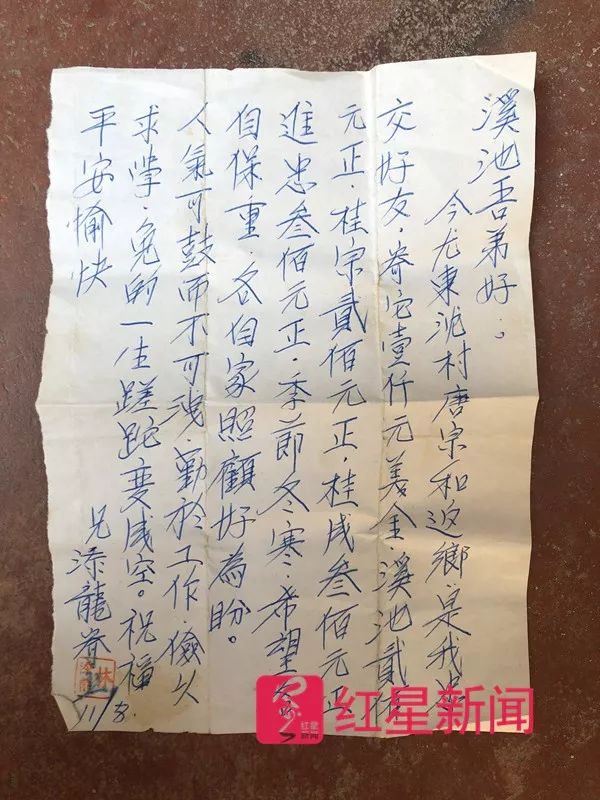 溪池吾弟好。
今尤東村唐宗和返鄉.是我忠
交好友,寄它壹仟元美金.溪池貳佰
元正.桂宗貳佰元正,桂成叁佰元正
進忠叁佰元正.季節冬寒.希望各
自保重.各自家照顧好為盼。
人氣可鼓而不可洩.勤於工作.儉久
求學.免的一生蹉跎变成空。祝福
平安愉快
兄添龍
林
11/8.
红星新闻
红星新闻